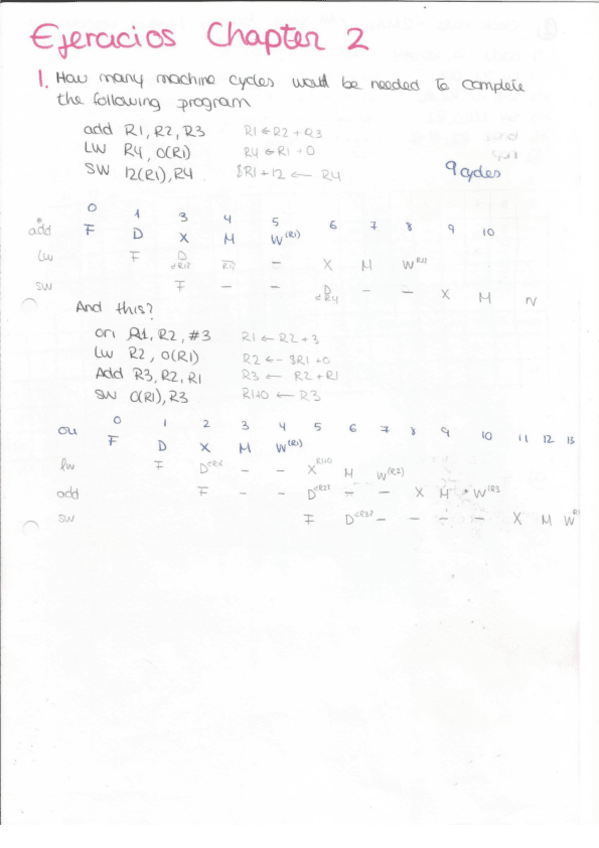 Ejercicios Chapter 2
1. How many machine cycles would be needed to complete
the following program
add R1, R2, R3 R1 ← R2 + R3
LW R4, 0(R1) R4 ← R1 + 0
SW 12(R1), R4 $R1 + 12 ← R4
9 cycles
0 1 3 4 5 6 7 8 9 10
add F D X M W(R1)
lw F D - X M W
sw F - - D - - X M W
And this?
ori R1, R2, #3 R1 ← R2 + 3
LW R2, 0(R1) R2 ← $R1 + 0
Add R3, R2, R1 R3 ← R2 + R1
SW 0(R1), R3 R1+0 ← R3
0 1 2 3 4 5 6 7 8 9 10 11 12 13
ori F D X M W(R1)
lw F D - - X M W(R2)
add F - - D - - X M W(R3
sw F D - - - - X M W